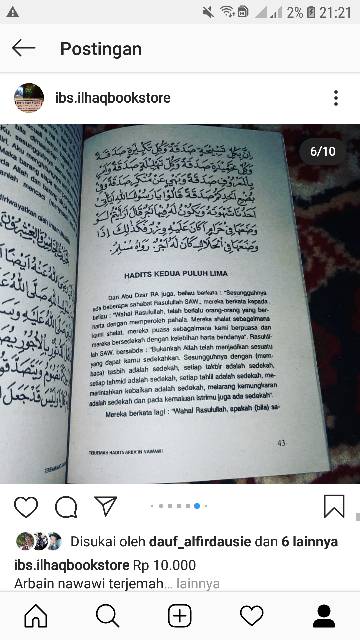 2% 21:21
Postingan
ibs.ilhaqbookstore
6/10
إِنَّ بِكُلِّ تَسْبِيْحَةٍ صَدَقَةً وَكُلِّ تَكْبِيْرَةٍ صَدَقَةً
وَكُلِّ تَحْمِيْدَةٍ صَدَقَةً وَكُلِّ تَهْلِيْلَةٍ صَدَقَةً وَأَمْرٍ
بِالْمَعْرُوْفِ صَدَقَةً وَنَهْيٍ عَنْ مُنْكَرٍ صَدَقَةً وَفِي
بُضْعِ أَحَدِكُمْ صَدَقَةً قَالُوْا يَا رَسُوْلَ اللهِ أَيَأْتِي
أَحَدُنَا شَهْوَتَهُ وَيَكُوْنُ لَهُ فِيْهَا أَجْرٌ قَالَ أَرَأَيْتُمْ لَوْ
وَضَعَهَا فِي حَرَامٍ أَكَانَ عَلَيْهِ وِزْرٌ فَكَذَلِكَ إِذَا
وَضَعَهَا فِي الْحَلَالِ كَانَ لَهُ أَجْرٌ. رَوَاهُ مُسْلِمٌ.
HADITS KEDUA PULUH LIMA
Dari Abu Dzar RA juga, beliau berkata : "Sesungguhnya
ada beberapa sahabat Rasulullah SAW., mereka berkata kepada
beliau : "Wahai Rasulullah, telah berlalu orang-orang yang ber-
harta dengan memperoleh pahala. Mereka shalat sebagaimana
kami shalat, mereka puasa sebagaimana kami berpuasa dan
mereka bersedekah dengan kelebihan harta bendanya". Rasulul-
lah SAW. bersabda : "Bukankah Allah telah menjadikan sesuatu
yang dapat kamu sedekahkan. Sesungguhnya dengan (mem-
baca) tasbih adalah sedekah, setiap takbir adalah sedekah,
setiap tahmid adalah sedekah, setiap tahlil adalah sedekah, me-
merintahkan kebaikan adalah sedekah, melarang kemungkaran
adalah sedekah dan pada kemaluan istrimu juga ada sedekah".
Mereka berkata lagi : "Wahai Rasulullah, apakah (bila) sa-
TERJEMAH HADITS ARBA'IN NAWAWI
43
Disukai oleh dauf_alfirdausie dan 6 lainnya
ibs.ilhaqbookstore Rp 10.000
Arbain nawawi terjemah... lainnya